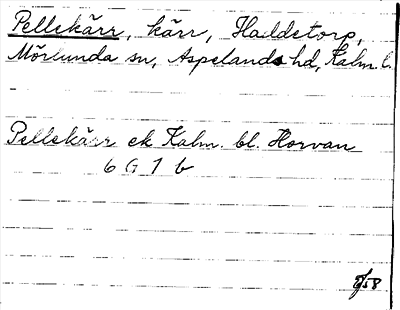 Pellekärr, kärr, Haddetorp,
Mörlunda sn, Aspelands hd, Kalm. l.
Pellekärr ek Kalm. bl. Horvan
6 G 7 b
58